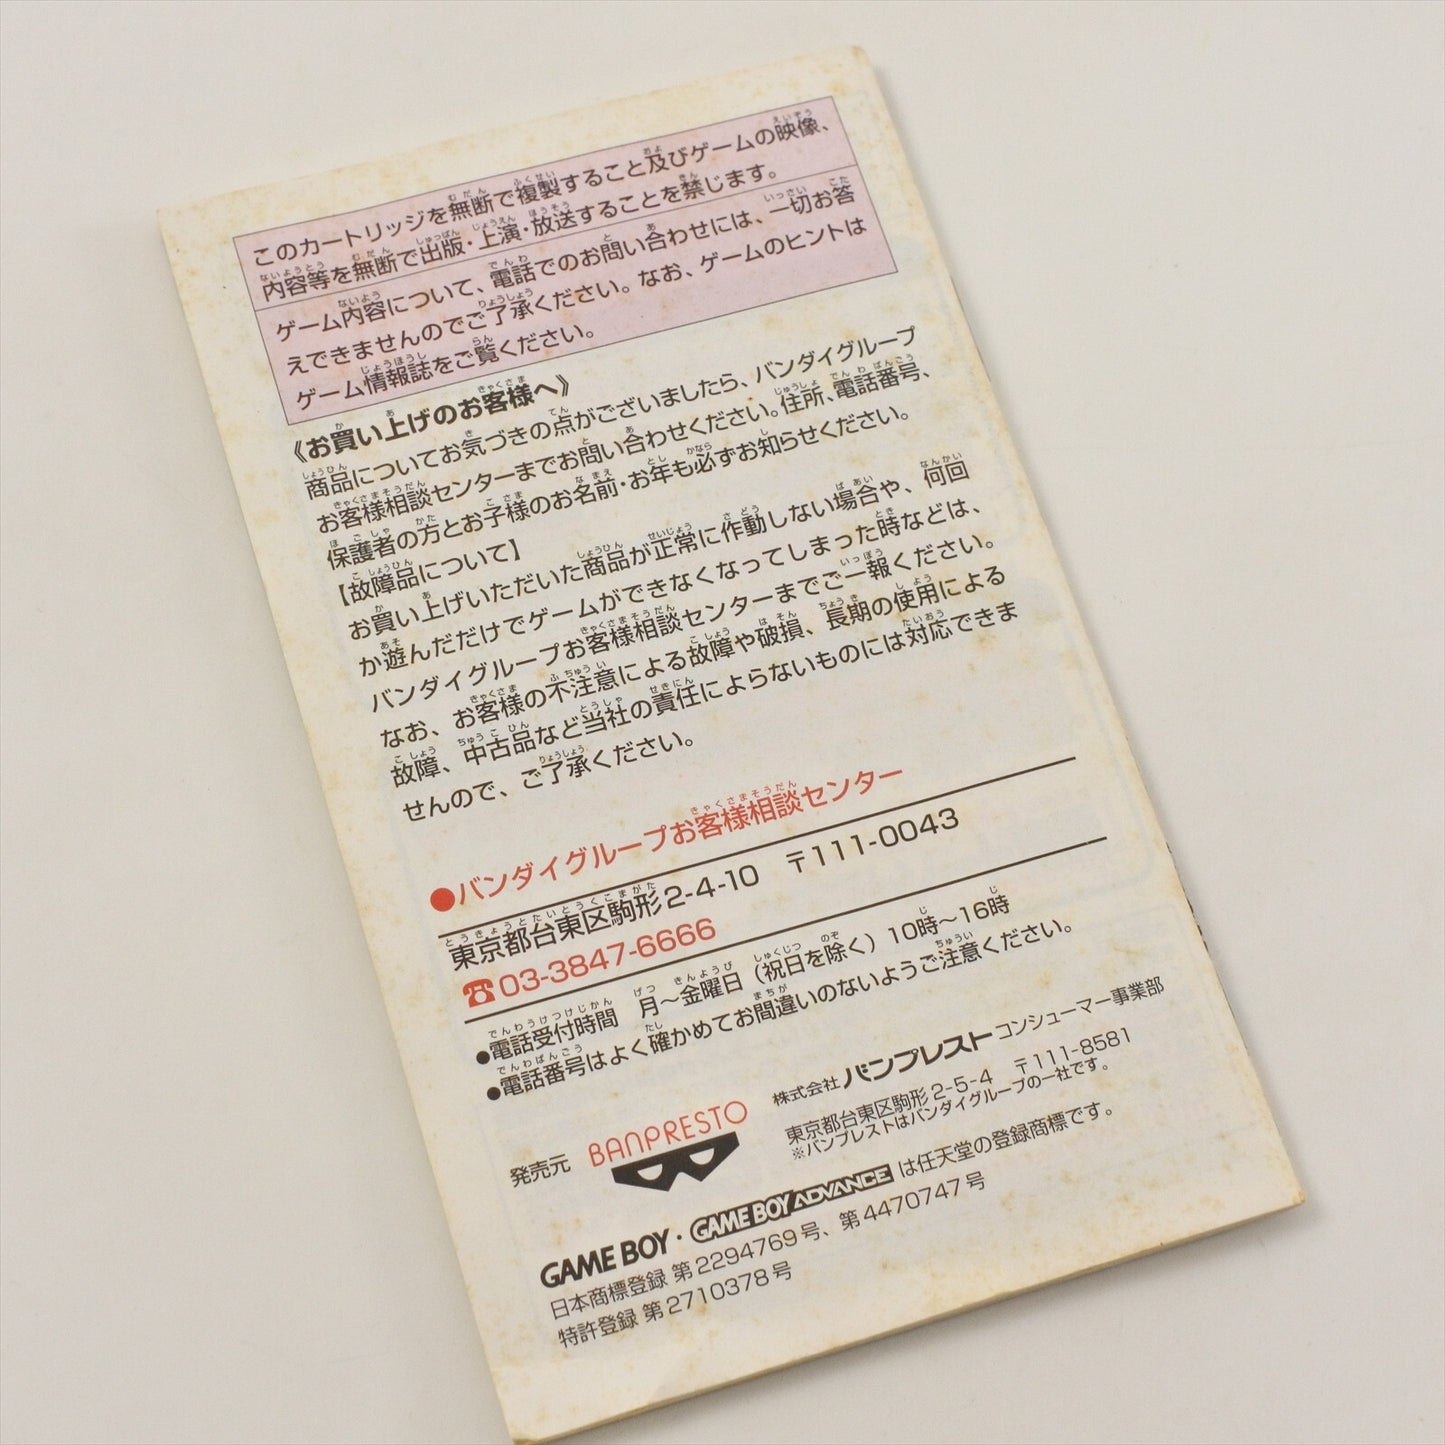 このカートリッジを無断で複製すること及びゲームの映像、
内容等を無断で出版・上演・放送することを禁じます。
ゲーム内容について、電話でのお問い合わせには、一切お答
えできませんのでご了承ください。なお、ゲームのヒントは
ゲーム情報誌をご覧ください。
《お買い上げのお客様へ》
商品についてお気づきの点がございましたら、バンダイグループ
お客様相談センターまでお問い合わせください。住所、電話番号、
保護者の方とお子様のお名前・お年も必ずお知らせください。
【故障品について】
お買い上げいただいた商品が正常に作動しない場合や、何回
か遊んだだけでゲームができなくなってしまった時などは、
バンダイグループお客様相談センターまでご一報ください。
なお、お客様の不注意による故障や破損、長期の使用による
故障、中古品など当社の責任によらないものには対応できま
せんので、ご了承ください。
●バンダイグループお客様相談センター
東京都台東区駒形2-4-10 〒111-0043
☎03-3847-6666
●電話受付時間 月～金曜日（祝日を除く）10時～16時
●電話番号はよく確かめてお間違いのないようご注意ください。
発売元
BANPRESTO
株式会社バンプレストコンシューマー事業部
東京都台東区駒形2-5-4 〒111-8581
※バンプレストはバンダイグループの一社です。
GAME BOY・GAME BOY ADVANCEは任天堂の登録商標です。
日本商標登録 第2294769号、第4470747号
特許登録 第2710378号